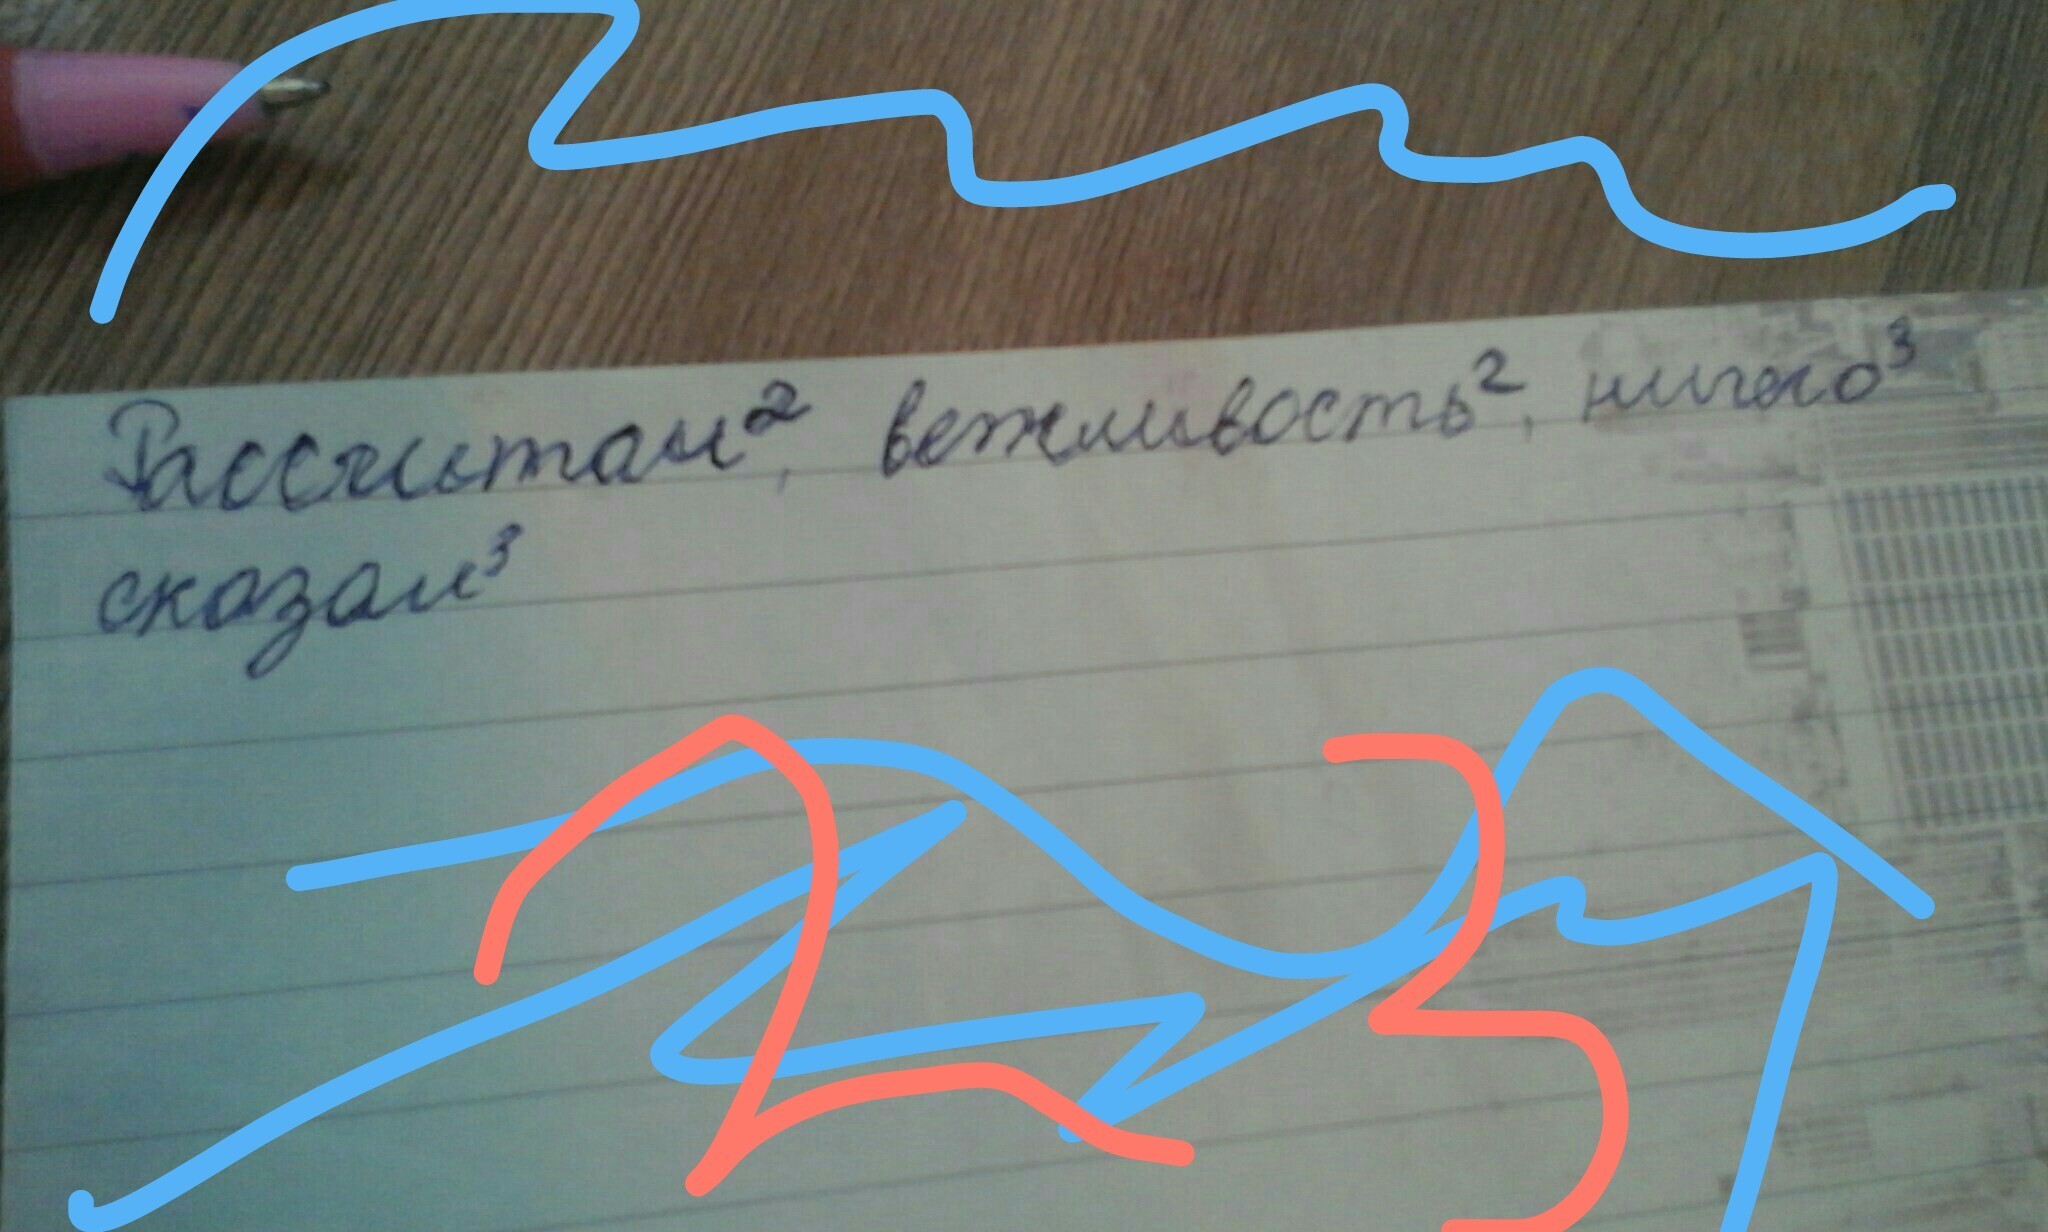 Рассчитал², вежливость², ничего³
сказал³
23